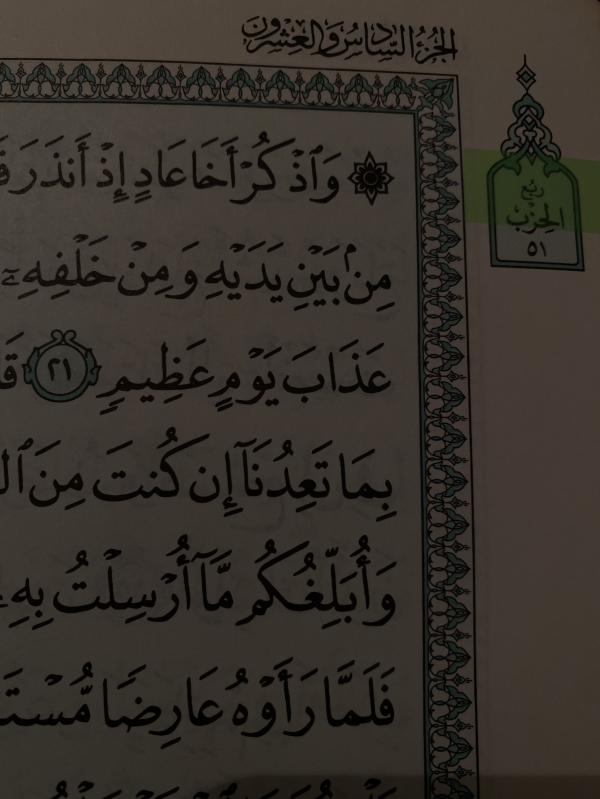 الجُزْءُ السَّادِسُ وَالعِشْرُونَ
رُبْع
الحِزْب
٥١
۞ وَٱذْكُرْ أَخَا عَادٍ إِذْ أَنذَرَ
مِنۢ بَيْنِ يَدَيْهِ وَمِنْ خَلْفِهِۦٓ
عَذَابَ يَوْمٍ عَظِيمٍ ٢١
بِمَا تَعِدُنَآ إِن كُنتَ مِنَ
وَأُبَلِّغُكُم مَّآ أُرْسِلْتُ بِهِۦ
فَلَمَّا رَأَوْهُ عَارِضًا